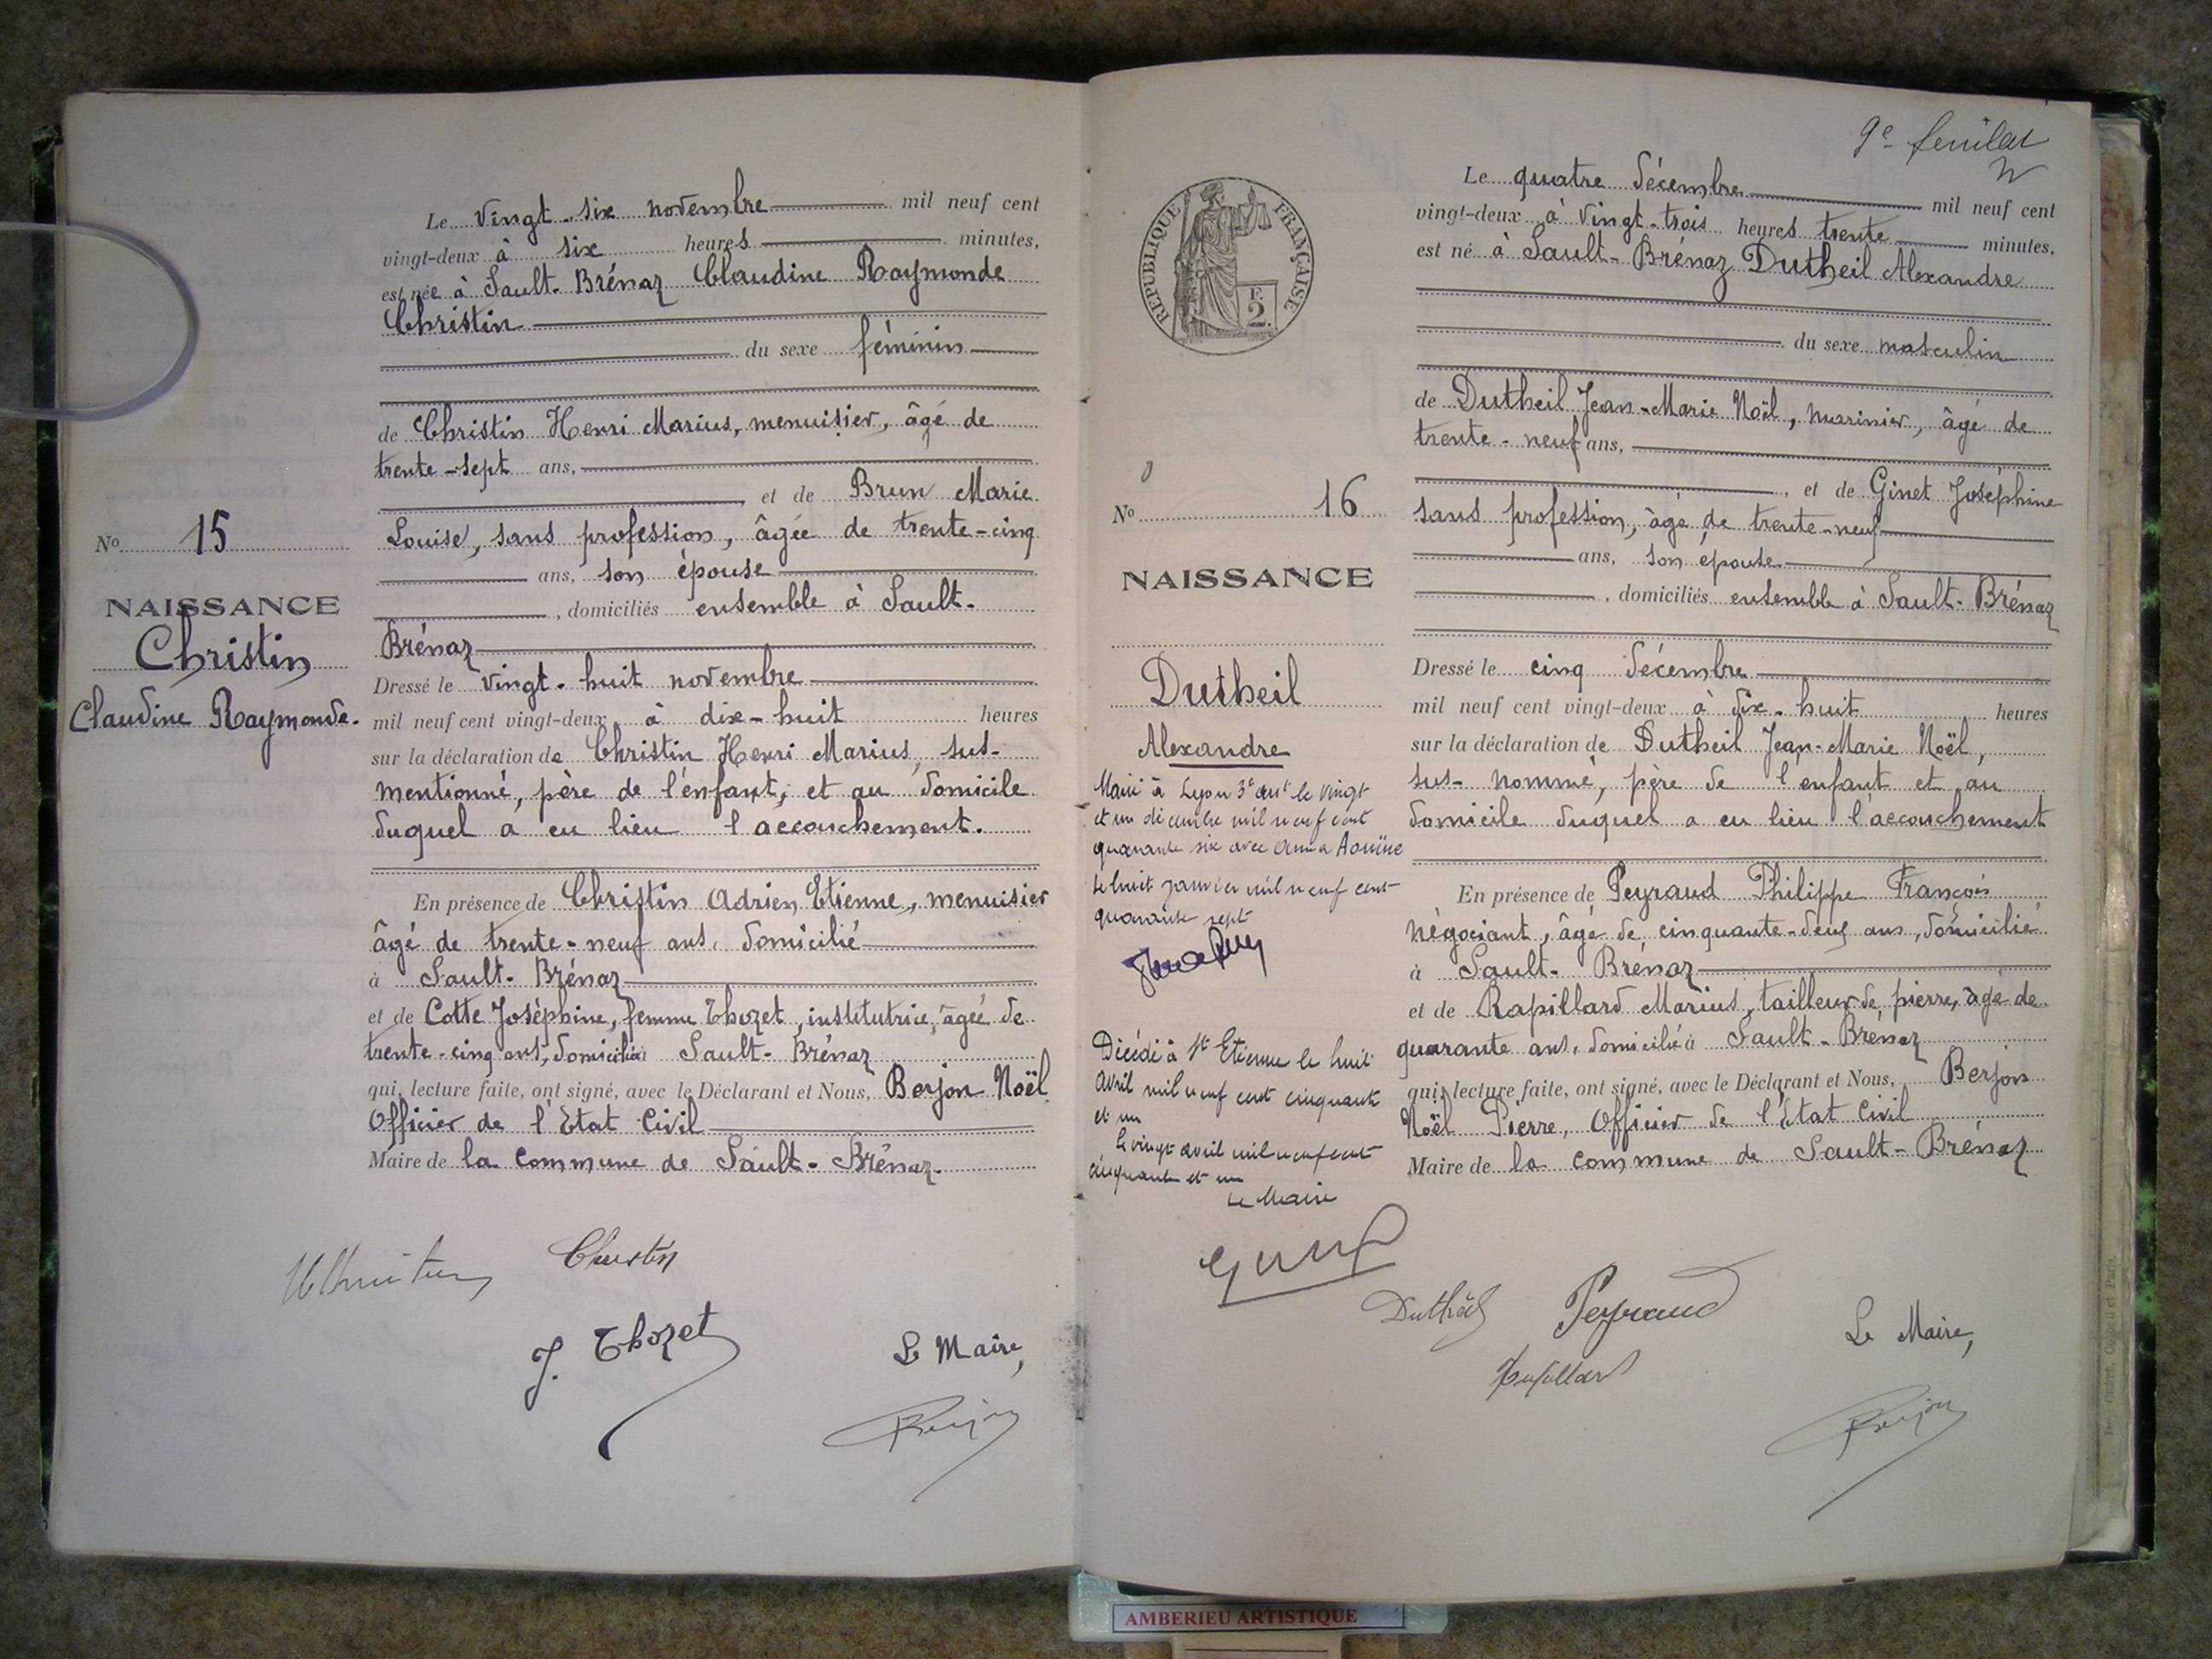 Le vingt-six novembre mil neuf cent
vingt-deux à six heures minutes,
est née à Sault-Brénaz Claudine Raymonde
Christin
du sexe féminin
de Christin Henri Marius, menuisier, âgé de
trente-sept ans,
et de Brun Marie
Louise, sans profession, âgée de trente-cinq
ans, son épouse
, domiciliés ensemble à Sault-
Brénaz
Dressé le vingt-huit novembre
mil neuf cent vingt-deux, à dix-huit heures
sur la déclaration de Christin Henri Marius, sus-
mentionné, père de l'enfant, et au domicile
duquel a eu lieu l'accouchement.
En présence de Christin Adrien Etienne, menuisier
âgé de trente-neuf ans, domicilié
à Sault-Brénaz
et de Cotte Joséphine, femme Thozet, institutrice, âgée de
trente-cinq ans, domiciliée Sault-Brénaz
qui, lecture faite, ont signé, avec le Déclarant et Nous, Berjon Noël
Officier de l'Etat Civil
Maire de la commune de Sault-Brénaz.
No 15
NAISSANCE
Christin
Claudine Raymonde.
Christin
J. Thozet
Le Maire,
Berjon
9e feuillet
RÉPUBLIQUE FRANÇAISE
F.
2.
Le quatre décembre mil neuf cent
vingt-deux à vingt-trois heures trente minutes,
est né à Sault-Brénaz Dutheil Alexandre
du sexe masculin
de Dutheil Jean-Marie Noël, marinier, âgé de
trente-neuf ans,
, et de Ginet Joséphine
sans profession, âgé de trente-neuf
ans, son épouse
, domiciliés ensemble à Sault-Brénaz
Dressé le cinq décembre
mil neuf cent vingt-deux à dix-huit heures
sur la déclaration de Dutheil Jean-Marie Noël,
sus-nommé, père de l'enfant et au
domicile duquel a eu lieu l'accouchement
En présence de Peyraud Philippe François
négociant, âgé de cinquante-deux ans, domicilié
à Sault-Brénaz
et de Rapillard Marius, tailleur de pierre, âgé de
quarante ans, domicilié à Sault-Brénaz
qui, lecture faite, ont signé, avec le Déclarant et Nous, Berjon
Noël Pierre, Officier de l'Etat Civil
Maire de la commune de Sault-Brénaz
No 16
NAISSANCE
Dutheil
Alexandre
Marié à Lyon 3e arrt le vingt
et un décembre mil neuf cent
quarante six avec Anna Aouïne
le huit janvier mil neuf cent
quarante sept
Décédé à St Etienne le huit
avril mil neuf cent cinquante
et un
le vingt avril mil neuf cent
cinquante et un
Le Maire
Dutheil
Peyraud
Rapillard
Le Maire,
Berjon
AMBERIEU ARTISTIQUE